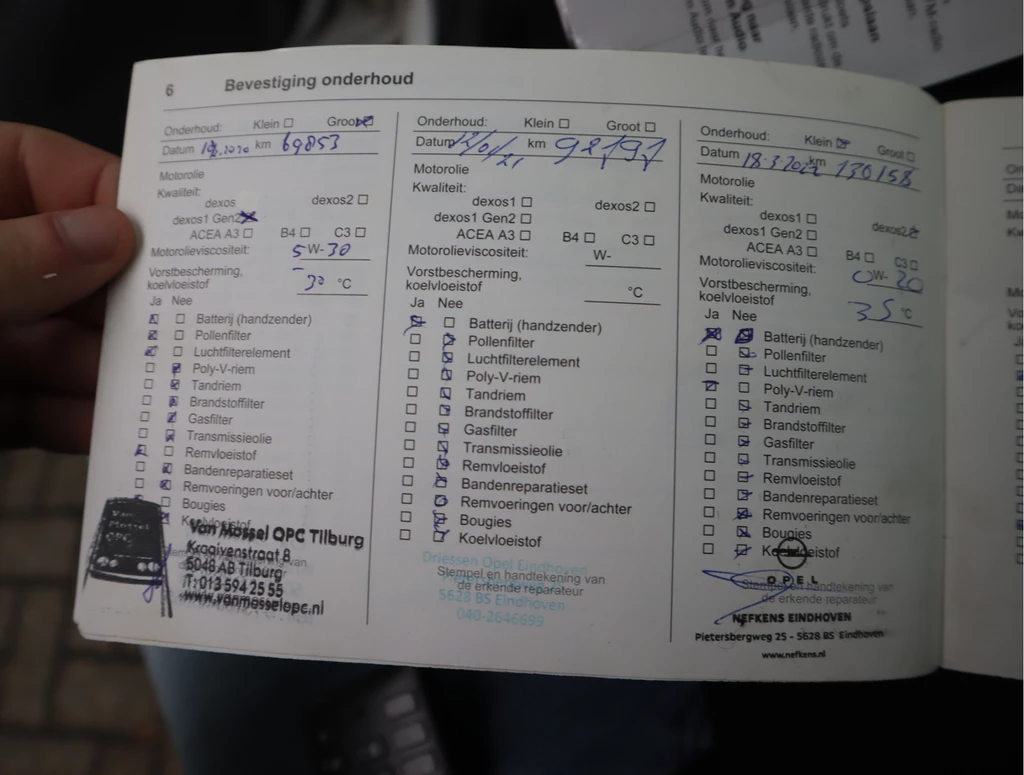 6 Bevestiging onderhoud
Onderhoud: Klein Groot
Datum km 69853
Motorolie
Kwaliteit:
dexos dexos2
dexos1 Gen2
ACEA A3 B4 C3
Motorolieviscositeit: 5 W- 30
Vorstbescherming,
koelvloeistof -30 °C
Ja Nee
Batterij (handzender)
Pollenfilter
Luchtfilterelement
Poly-V-riem
Tandriem
Brandstoffilter
Gasfilter
Transmissieolie
Remvloeistof
Bandenreparatieset
Remvoeringen voor/achter
Bougies
Koelvloeistof
Van Mossel OPC Tilburg
Kraaivenstraat 8
5048 AB Tilburg
T: 013 594 25 55
www.vanmosselopc.nl
Van
Mossel
OPC
Onderhoud: Klein Groot
Datum 12/01/21 km 92191
Motorolie
Kwaliteit:
dexos1 dexos2
dexos1 Gen2
ACEA A3 B4 C3
Motorolieviscositeit: W-
Vorstbescherming,
koelvloeistof °C
Ja Nee
Batterij (handzender)
Pollenfilter
Luchtfilterelement
Poly-V-riem
Tandriem
Brandstoffilter
Gasfilter
Transmissieolie
Remvloeistof
Bandenreparatieset
Remvoeringen voor/achter
Bougies
Koelvloeistof
Driessen Opel Eindhoven
Stempel en handtekening van
de erkende reparateur
5628 BS Eindhoven
040-2646699
Onderhoud: Klein Groot
Datum 18-3-2022 km 130158
Motorolie
Kwaliteit:
dexos1 dexos2
dexos1 Gen2
ACEA A3 B4 C3
Motorolieviscositeit: 0W-20
Vorstbescherming,
koelvloeistof 35 °C
Ja Nee
Batterij (handzender)
Pollenfilter
Luchtfilterelement
Poly-V-riem
Tandriem
Brandstoffilter
Gasfilter
Transmissieolie
Remvloeistof
Bandenreparatieset
Remvoeringen voor/achter
Bougies
Koelvloeistof
OPEL
Stempel en handtekening van
de erkende reparateur
NEFKENS EINDHOVEN
Pietersbergweg 25 - 5628 BS Eindhoven
www.nefkens.nl